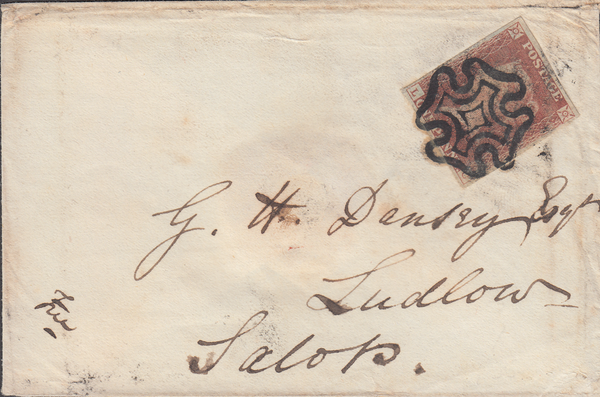 POSTAGE
G. H. Dansey Esqr
Ludlow
Salop.